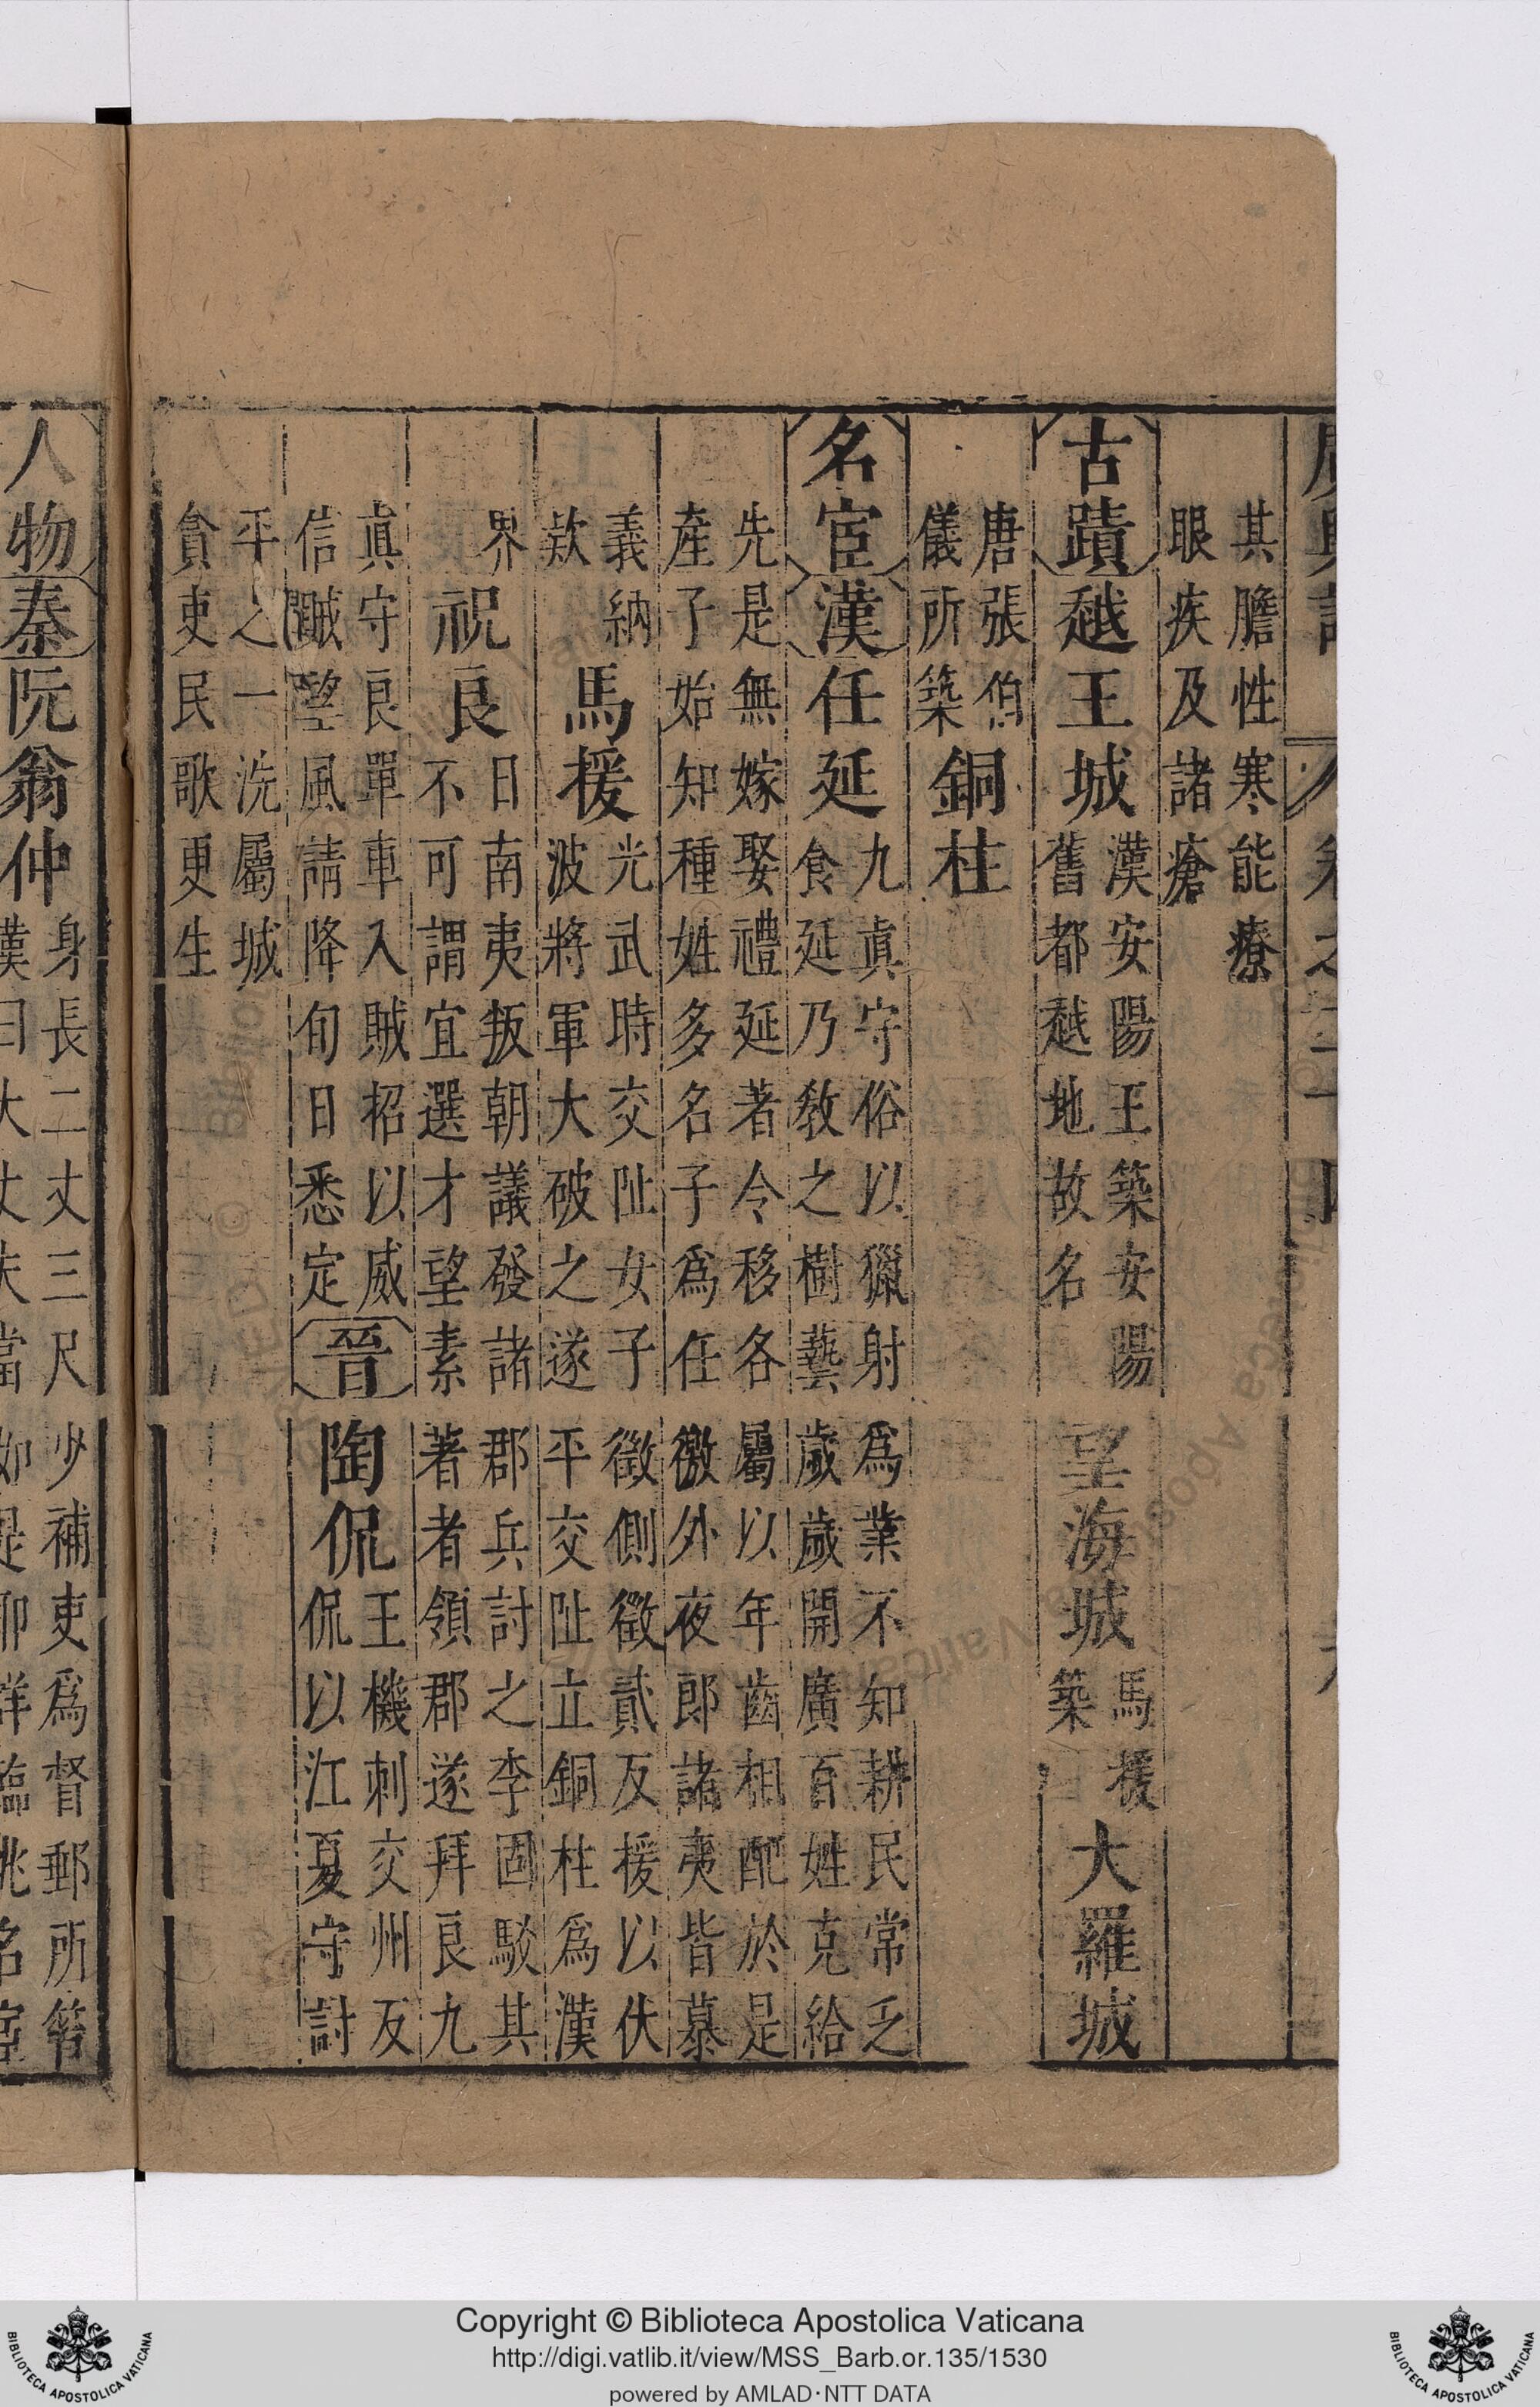 其膽性寒能療
眼疾及諸瘡
古蹟 越王城 漢安陽王築安陽
舊都越地故名
望海城 馬援
築 大羅城
唐張伯
儀所築 銅柱
名宦 漢 任延 九真守俗以獵射爲業不知耕民常乏
食延乃教之樹藝歲歲開廣百姓克給
先是無嫁娶禮延著令移各屬以年齒相配於是
產子始知種姓多名子爲任徼外夜郎諸夷皆慕
義納
款 馬援 光武時交阯女子徵側徵貳反援以伏
波將軍大破之遂平交阯立銅柱爲漢
界 祝良 日南夷叛朝議發諸郡兵討之李固駁其
不可謂宜選才望素著者領郡遂拜良九
真守良單車入賊招以威
信賊望風請降旬日悉定 晉 陶侃 王機刺交州反
侃以江夏守討
平之一洗屬城
貪吏民歌更生
人物 秦 阮翁仲 身長二丈三尺少補吏爲督郵所笞
Copyright © Biblioteca Apostolica Vaticana
http://digi.vatlib.it/view/MSS_Barb.or.135/1530
powered by AMLAD·NTT DATA
BIBLIOTECA APOSTOLICA VATICANA
BIBLIOTECA APOSTOLICA VATICANA